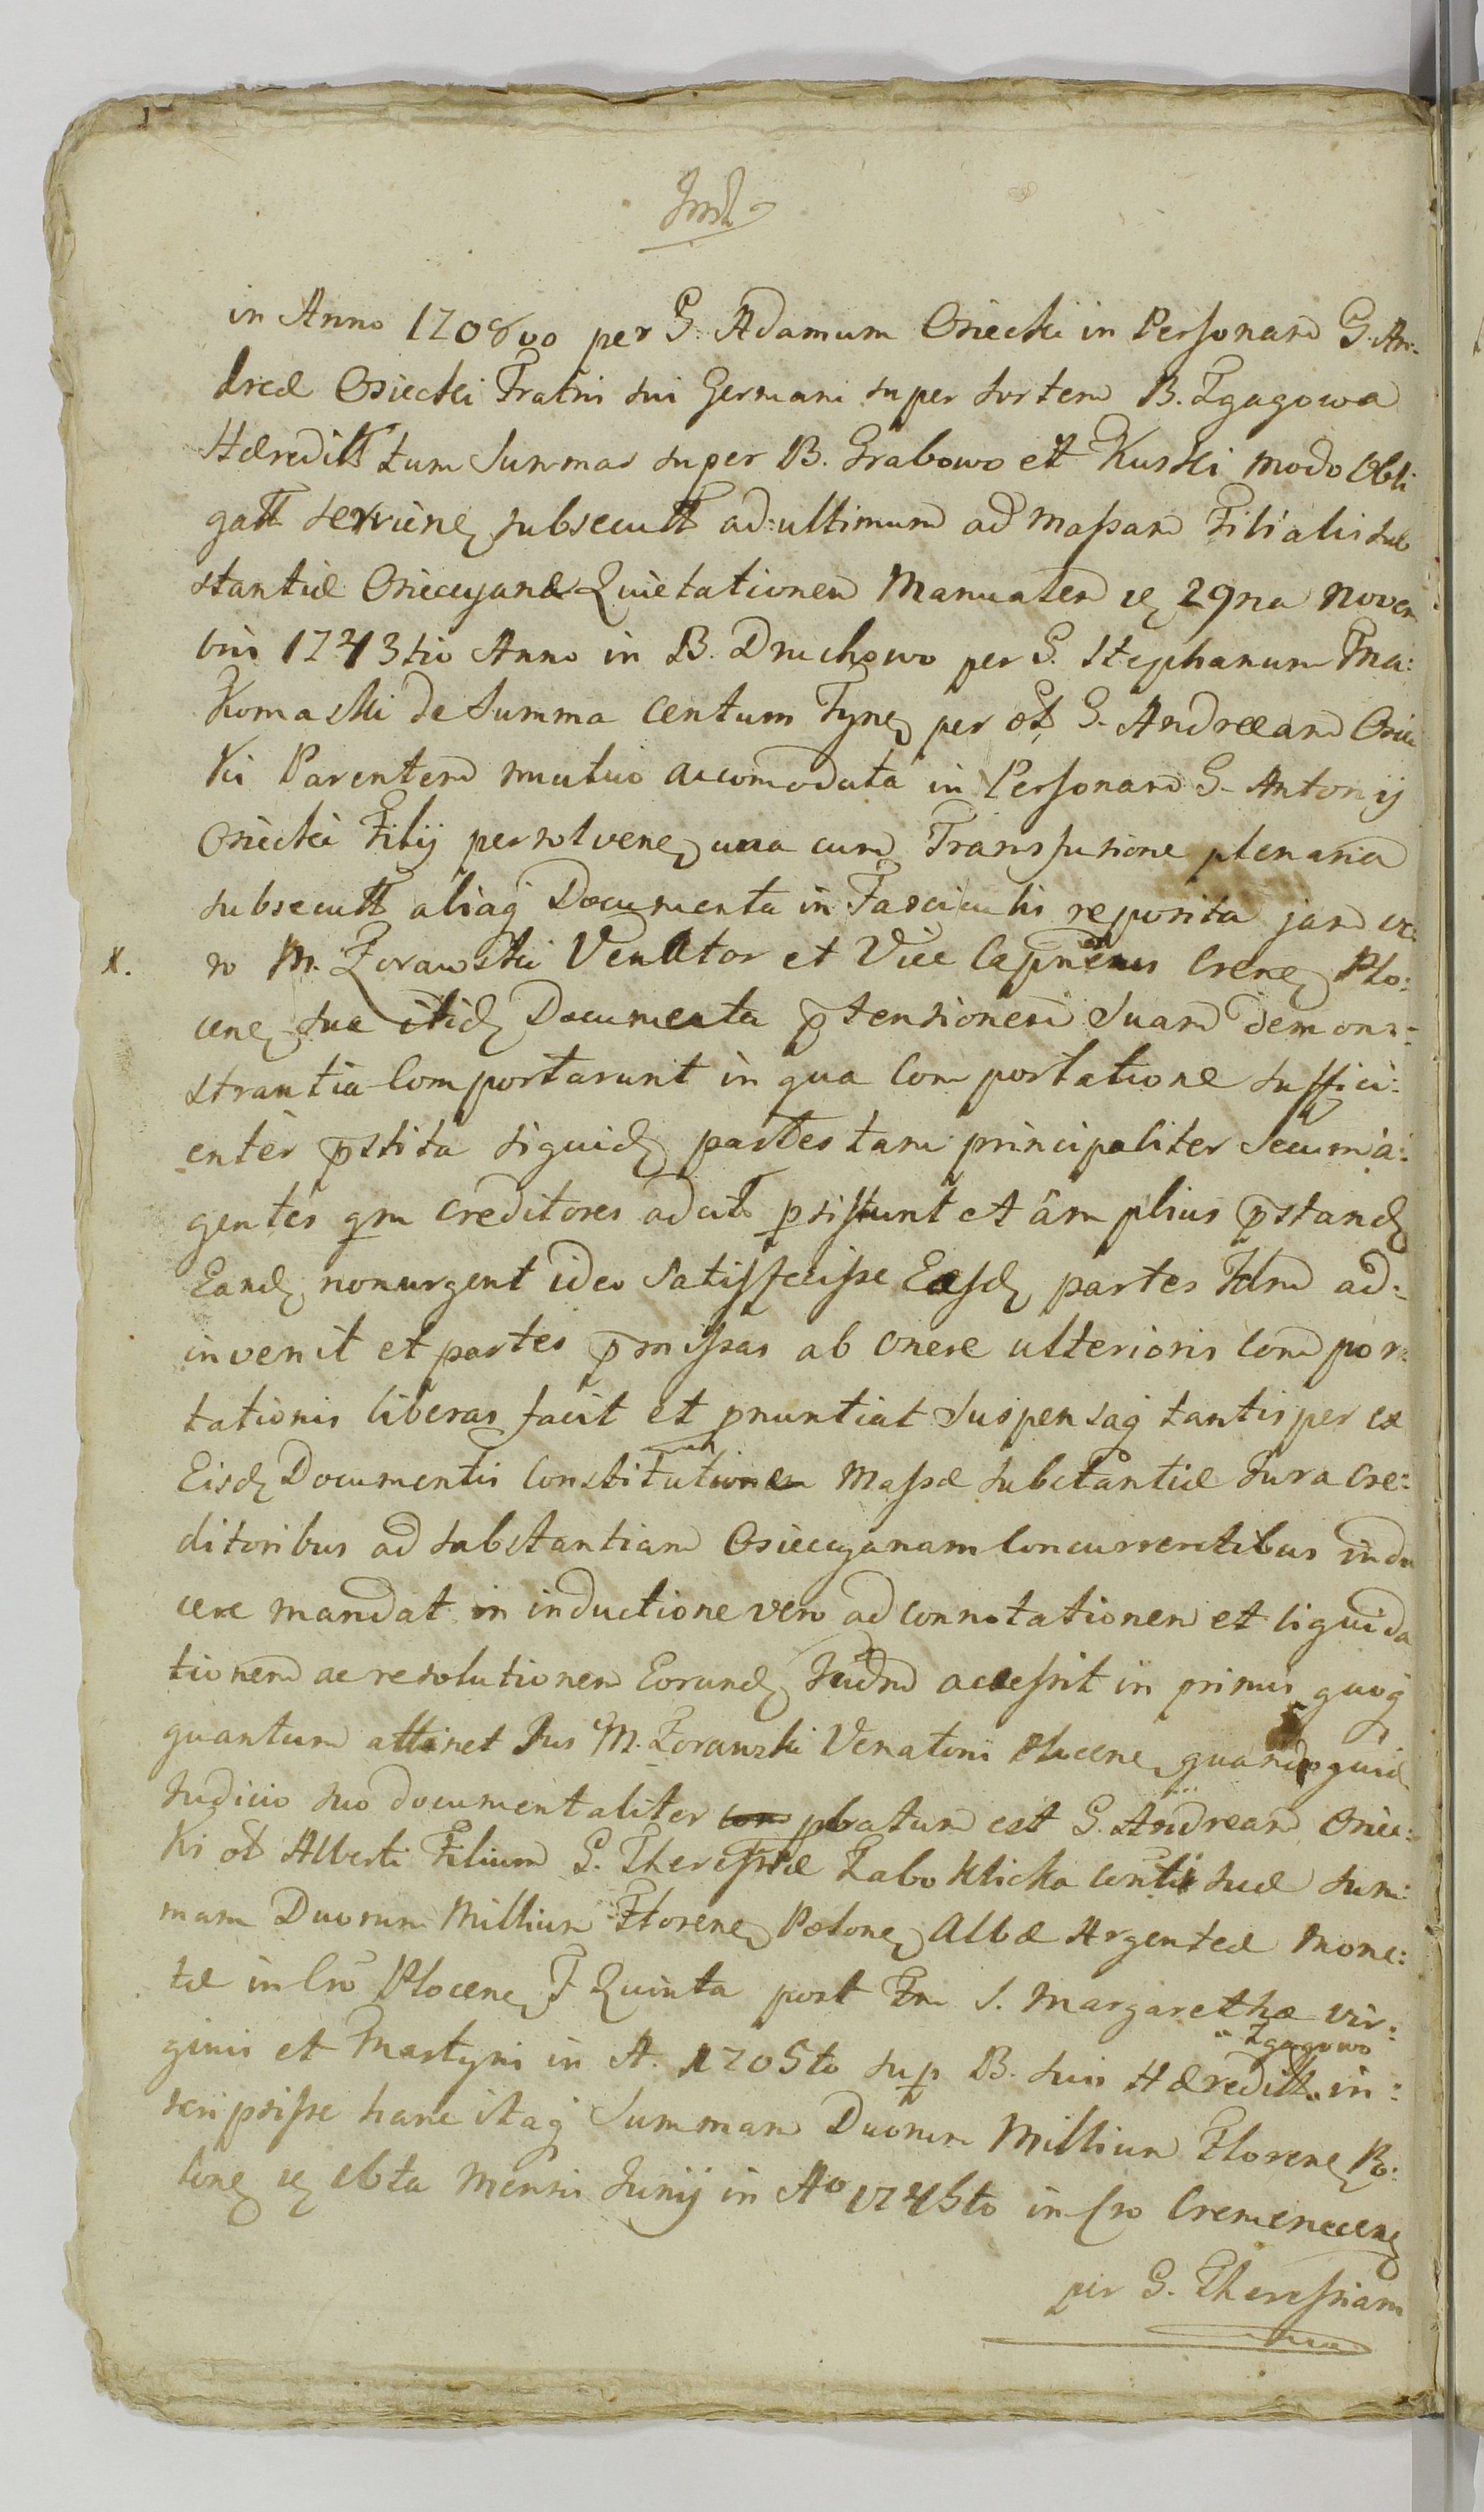 in Anno 1708vo per G. Adamum Osiecki in Personam G. An:
dreæ Osiecki Fratris sui Germani super sortem B. Zgagowa
Hæreditt tum Summas super B. Grabowo ett Kuski modo Obli
gatt servienę subsecutt ad: ultimum ad Massam Filialis sub
stantiæ Osiecyanæ Quietationem Manualem ę 29na Novem
bris 1743tio Anno in B. Druchowo per G. Stephanum Tra:
Komaski de Summa Centum Tynę per ot G. Andreeam Osiec
ki Parentem mutuo accomodata in Personam G. Antonij
Osiecki Filij persolvenę una cum Transfusione plenaria
subsecutt aliaq Documenta in Fasciculis reposita jam ve:
x. ro M. Zorawski Venator et Vice Capneus Crenę Plo:
cenę sua itidę Documenta ptensionem Suam demons:
strantia Comportarunt in qua Comportatione suffici:
enter pstita siquidę partes tam principaliter Secum a:
gentes qm Creditores adcit psistunt et âmplius pstandę
Eandę non urgent ideo Satisfecisse Easdę partes Idm ad:
invenit et partes pmissas ab onere ulterioris Compor:
tationis liberas facit et pnuntiat Suspensaq tantisper ex
Eisdę Documentis Constitutionem Massæ Substantiæ Jura Cre:
ditoribus ad Substantiam Osiecyanam Concurrentibus indu
cere mandat in inductione vero ad Connotationem et liquida
tionem ac resolutionem Eorundę Iudm accessit in primis quoq
quantum attinet Jus M. Zorawski Venatoris Plocenę quandoquid
Judicio suo documentaliter com pbatum est G. Andream Osiec:
ki ot Alberti Filium G. Theressiæ Zaboklicka Conti suæ Sum:
mam Duorum Millium Florenę Polonę Albæ Argenteæ Mone:
tæ in Cro Plocenę F. Quinta post Fm S. Margarethæ Vir:
Zgagowo
ginis et Martyris in A. 1705to sup B. suis Hæreditt in:
scripsisse hanc itaq Summam Duorum Millium Florenę Po:
lonę ę ebta Mensis Junij in Ao 1745to in Cro Cremenecenę
per G. Theressiam